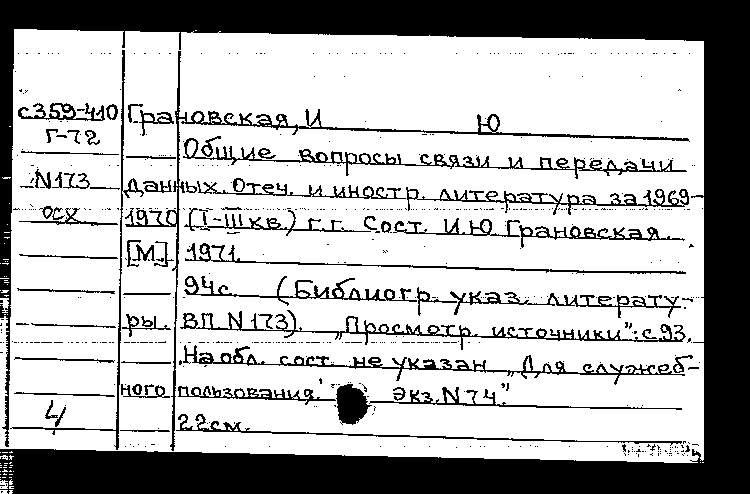 с359-410 Грановская, И Ю
Г-72
Общие вопросы связи и передачи
N173 данных. Отеч. и иностр. литература за 1969-
осх 1970 (I-III кв.) г.г. Сост. И.Ю Грановская.
[М.], 1971.
94с. (Библиогр. указ. литерату-
ры. ВП. N173). „Просмотр. источники": с.93.
На обл. сост. не указан. „Для служеб-
ного пользования." Экз. N74."
4
22см.